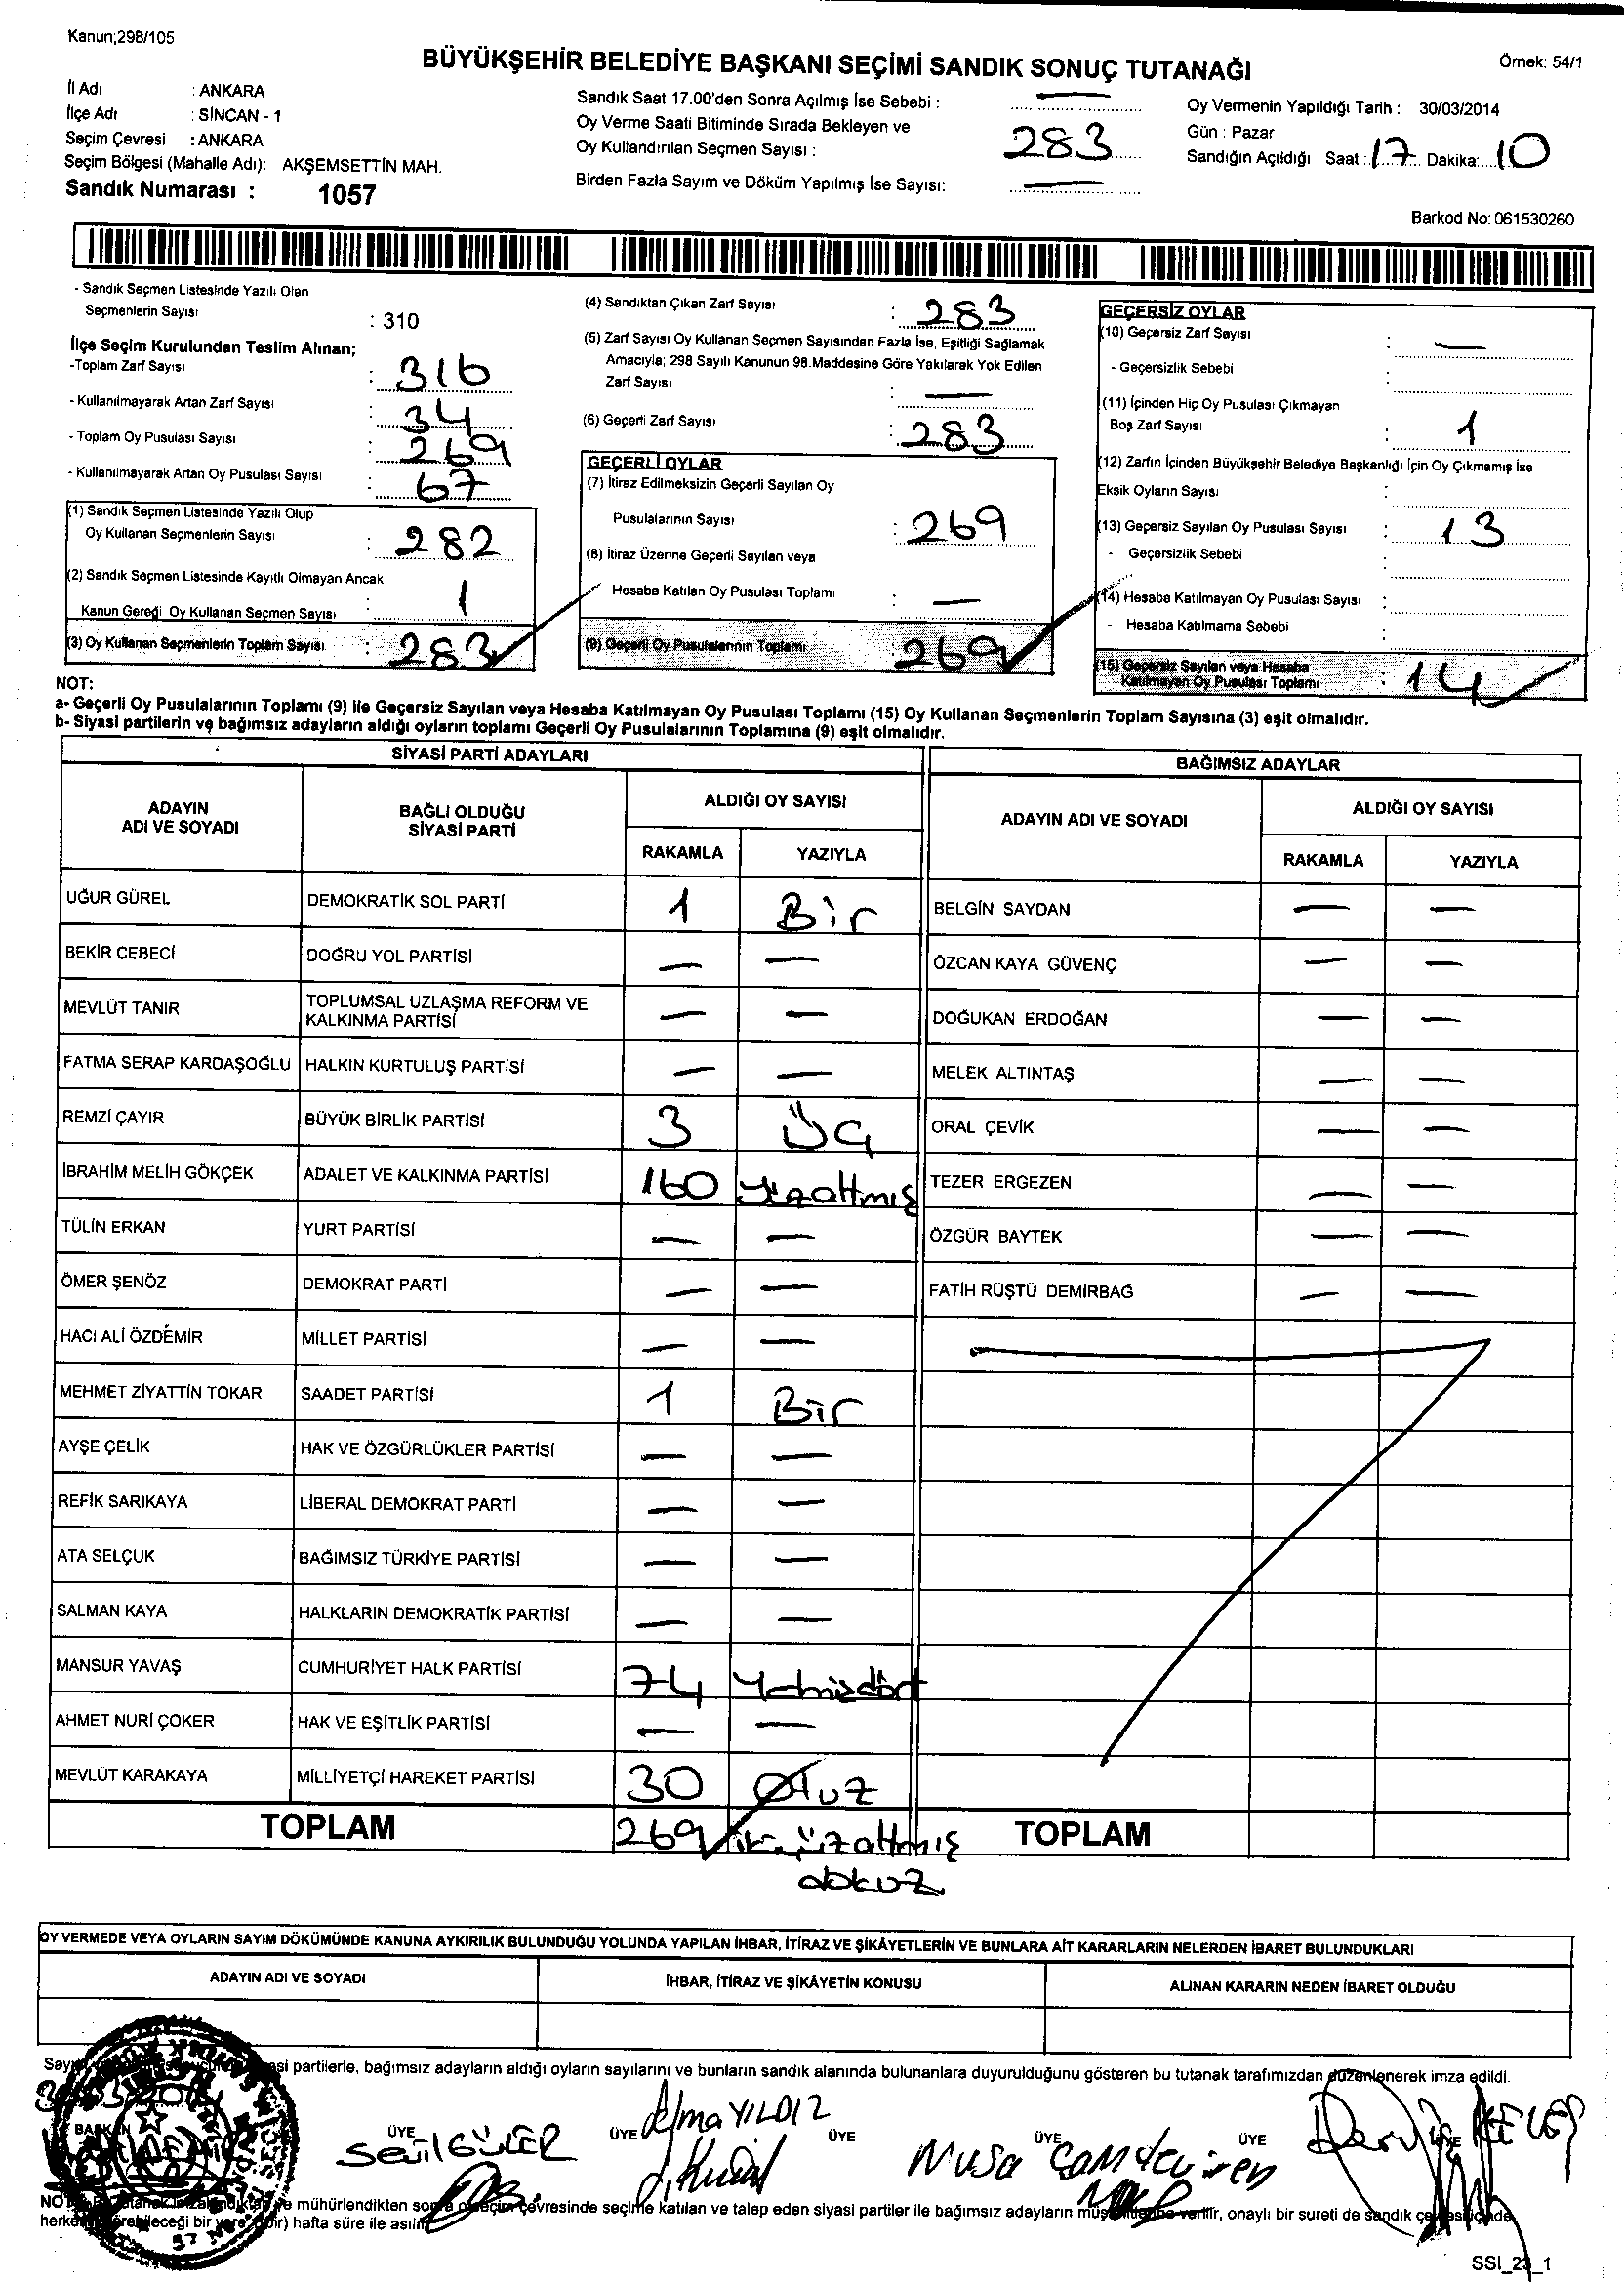 Kanun;298/105
BÜYÜKŞEHİR BELEDİYE BAŞKANI SEÇİMİ SANDIK SONUÇ TUTANAĞI
Örnek: 54/1
İl Adı : ANKARA
İlçe Adı : SİNCAN - 1
Seçim Çevresi : ANKARA
Seçim Bölgesi (Mahalle Adı): AKŞEMSETTİN MAH.
Sandık Numarası : 1057
Sandık Saat 17.00'den Sonra Açılmış İse Sebebi : —
Oy Verme Saati Bitiminde Sırada Bekleyen ve
Oy Kullandırılan Seçmen Sayısı : 283
Birden Fazla Sayım ve Döküm Yapılmış İse Sayısı: —
Oy Vermenin Yapıldığı Tarih : 30/03/2014
Gün : Pazar
Sandığın Açıldığı Saat : 17 Dakika: 10
Barkod No: 061530260
- Sandık Seçmen Listesinde Yazılı Olan
Seçmenlerin Sayısı : 310
İlçe Seçim Kurulundan Teslim Alınan;
-Toplam Zarf Sayısı : 316
- Kullanılmayarak Artan Zarf Sayısı : 34
- Toplam Oy Pusulası Sayısı : 269
- Kullanılmayarak Artan Oy Pusulası Sayısı : 67
(1) Sandık Seçmen Listesinde Yazılı Olup
Oy Kullanan Seçmenlerin Sayısı : 282
(2) Sandık Seçmen Listesinde Kayıtlı Olmayan Ancak
Kanun Gereği Oy Kullanan Seçmen Sayısı : 1
(3) Oy Kullanan Seçmenlerin Toplam Sayısı : 283
(4) Sandıktan Çıkan Zarf Sayısı : 283
(5) Zarf Sayısı Oy Kullanan Seçmen Sayısından Fazla İse, Eşitliği Sağlamak
Amacıyla; 298 Sayılı Kanunun 98.Maddesine Göre Yakılarak Yok Edilen
Zarf Sayısı : —
(6) Geçerli Zarf Sayısı : 283
GEÇERLİ OYLAR
(7) İtiraz Edilmeksizin Geçerli Sayılan Oy
Pusulalarının Sayısı : 269
(8) İtiraz Üzerine Geçerli Sayılan veya
Hesaba Katılan Oy Pusulası Toplamı : —
(9) Geçerli Oy Pusulalarının Toplamı : 269
GEÇERSİZ OYLAR
(10) Geçersiz Zarf Sayısı : —
- Geçersizlik Sebebi :
(11) İçinden Hiç Oy Pusulası Çıkmayan
Boş Zarf Sayısı : 1
(12) Zarfın İçinden Büyükşehir Belediye Başkanlığı İçin Oy Çıkmamış İse
Eksik Oyların Sayısı :
(13) Geçersiz Sayılan Oy Pusulası Sayısı : 13
- Geçersizlik Sebebi
(14) Hesaba Katılmayan Oy Pusulası Sayısı :
- Hesaba Katılmama Sebebi :
(15) Geçersiz Sayılan veya Hesaba
Katılmayan Oy Pusulası Toplamı : 14
NOT:
a- Geçerli Oy Pusulalarının Toplamı (9) ile Geçersiz Sayılan veya Hesaba Katılmayan Oy Pusulası Toplamı (15) Oy Kullanan Seçmenlerin Toplam Sayısına (3) eşit olmalıdır.
b- Siyasi partilerin ve bağımsız adayların aldığı oyların toplamı Geçerli Oy Pusulalarının Toplamına (9) eşit olmalıdır.
SİYASİ PARTİ ADAYLARI
ADAYIN ADI VE SOYADI BAĞLI OLDUĞU SİYASİ PARTİ ALDIĞI OY SAYISI
RAKAMLA YAZIYLA
UĞUR GÜREL DEMOKRATİK SOL PARTİ 1 Bir
BEKİR CEBECİ DOĞRU YOL PARTİSİ — —
MEVLÜT TANIR TOPLUMSAL UZLAŞMA REFORM VE KALKINMA PARTİSİ — —
FATMA SERAP KARDAŞOĞLU HALKIN KURTULUŞ PARTİSİ — —
REMZİ ÇAYIR BÜYÜK BİRLİK PARTİSİ 3 Üç
İBRAHİM MELİH GÖKÇEK ADALET VE KALKINMA PARTİSİ 160 Yüzaltmış
TÜLİN ERKAN YURT PARTİSİ — —
ÖMER ŞENÖZ DEMOKRAT PARTİ — —
HACI ALİ ÖZDEMİR MİLLET PARTİSİ — —
MEHMET ZİYATTİN TOKAR SAADET PARTİSİ 1 Bir
AYŞE ÇELİK HAK VE ÖZGÜRLÜKLER PARTİSİ — —
REFİK SARIKAYA LİBERAL DEMOKRAT PARTİ — —
ATA SELÇUK BAĞIMSIZ TÜRKİYE PARTİSİ — —
SALMAN KAYA HALKLARIN DEMOKRATİK PARTİSİ — —
MANSUR YAVAŞ CUMHURİYET HALK PARTİSİ 74 Yetmişdört
AHMET NURİ ÇOKER HAK VE EŞİTLİK PARTİSİ — —
MEVLÜT KARAKAYA MİLLİYETÇİ HAREKET PARTİSİ 30 Otuz
TOPLAM 269 ikiyüzaltmış
dokuz
BAĞIMSIZ ADAYLAR
ADAYIN ADI VE SOYADI ALDIĞI OY SAYISI
RAKAMLA YAZIYLA
BELGİN SAYDAN — —
ÖZCAN KAYA GÜVENÇ — —
DOĞUKAN ERDOĞAN — —
MELEK ALTINTAŞ — —
ORAL ÇEVİK — —
TEZER ERGEZEN — —
ÖZGÜR BAYTEK — —
FATİH RÜŞTÜ DEMİRBAĞ — —
TOPLAM
OY VERMEDE VEYA OYLARIN SAYIM DÖKÜMÜNDE KANUNA AYKIRILIK BULUNDUĞU YOLUNDA YAPILAN İHBAR, İTİRAZ VE ŞİKÂYETLERİN VE BUNLARA AİT KARARLARIN NELERDEN İBARET BULUNDUKLARI
ADAYIN ADI VE SOYADI İHBAR, İTİRAZ VE ŞİKÂYETİN KONUSU ALINAN KARARIN NEDEN İBARET OLDUĞU
partilerle, bağımsız adayların aldığı oyların sayılarını ve bunların sandık alanında bulunanlara duyurulduğunu gösteren bu tutanak tarafımızdan düzenlenerek imza edildi.
ÜYE ÜYE ÜYE ÜYE ÜYE
Sevil GÜLER YILDIZ Musa Çamdeviren
mühürlendikten sonra o seçim çevresinde seçime katılan ve talep eden siyasi partiler ile bağımsız adayların verilir, onaylı bir sureti de sandık
hafta süre ile asılır
SSI_23_1